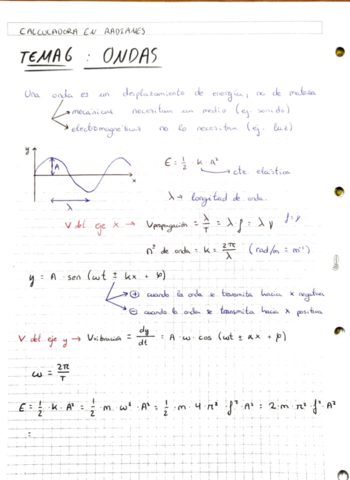 CALCULADORA EN RADIANES
TEMA 6 : ONDAS
Una onda es un desplazamiento de energía, no de materia
mecánicas necesitan un medio (ej. sonido)
electromagnéticas no lo necesitan (ej. luz)
y
A
x
λ
E = 1/2 k·A²
cte elástica
λ → longitud de onda
V del eje x → Vpropagación = λ/T = λ·f = λν f=ν
nº de onda = k = 2π/λ (rad/m = m⁻¹)
y = A · sen (ωt ± kx + φ)
+ cuando la onda se transmite hacia x negativa
- cuando la onda se transmite hacia x positiva
V del eje y → Vvibración = dy/dt = A·ω·cos (ωt ± kx + φ)
ω = 2π/T
E = 1/2 · k · A² = 1/2 · m · ω² · A² = 1/2 · m · 4 · π² · f² · A² = 2 · m · π² · f² · A²
=